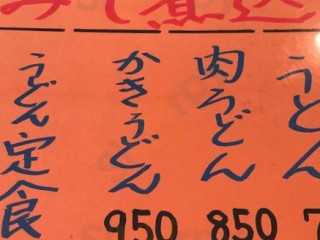 みそ煮込
うどん
肉うどん
850
かきうどん
950
うどん定食